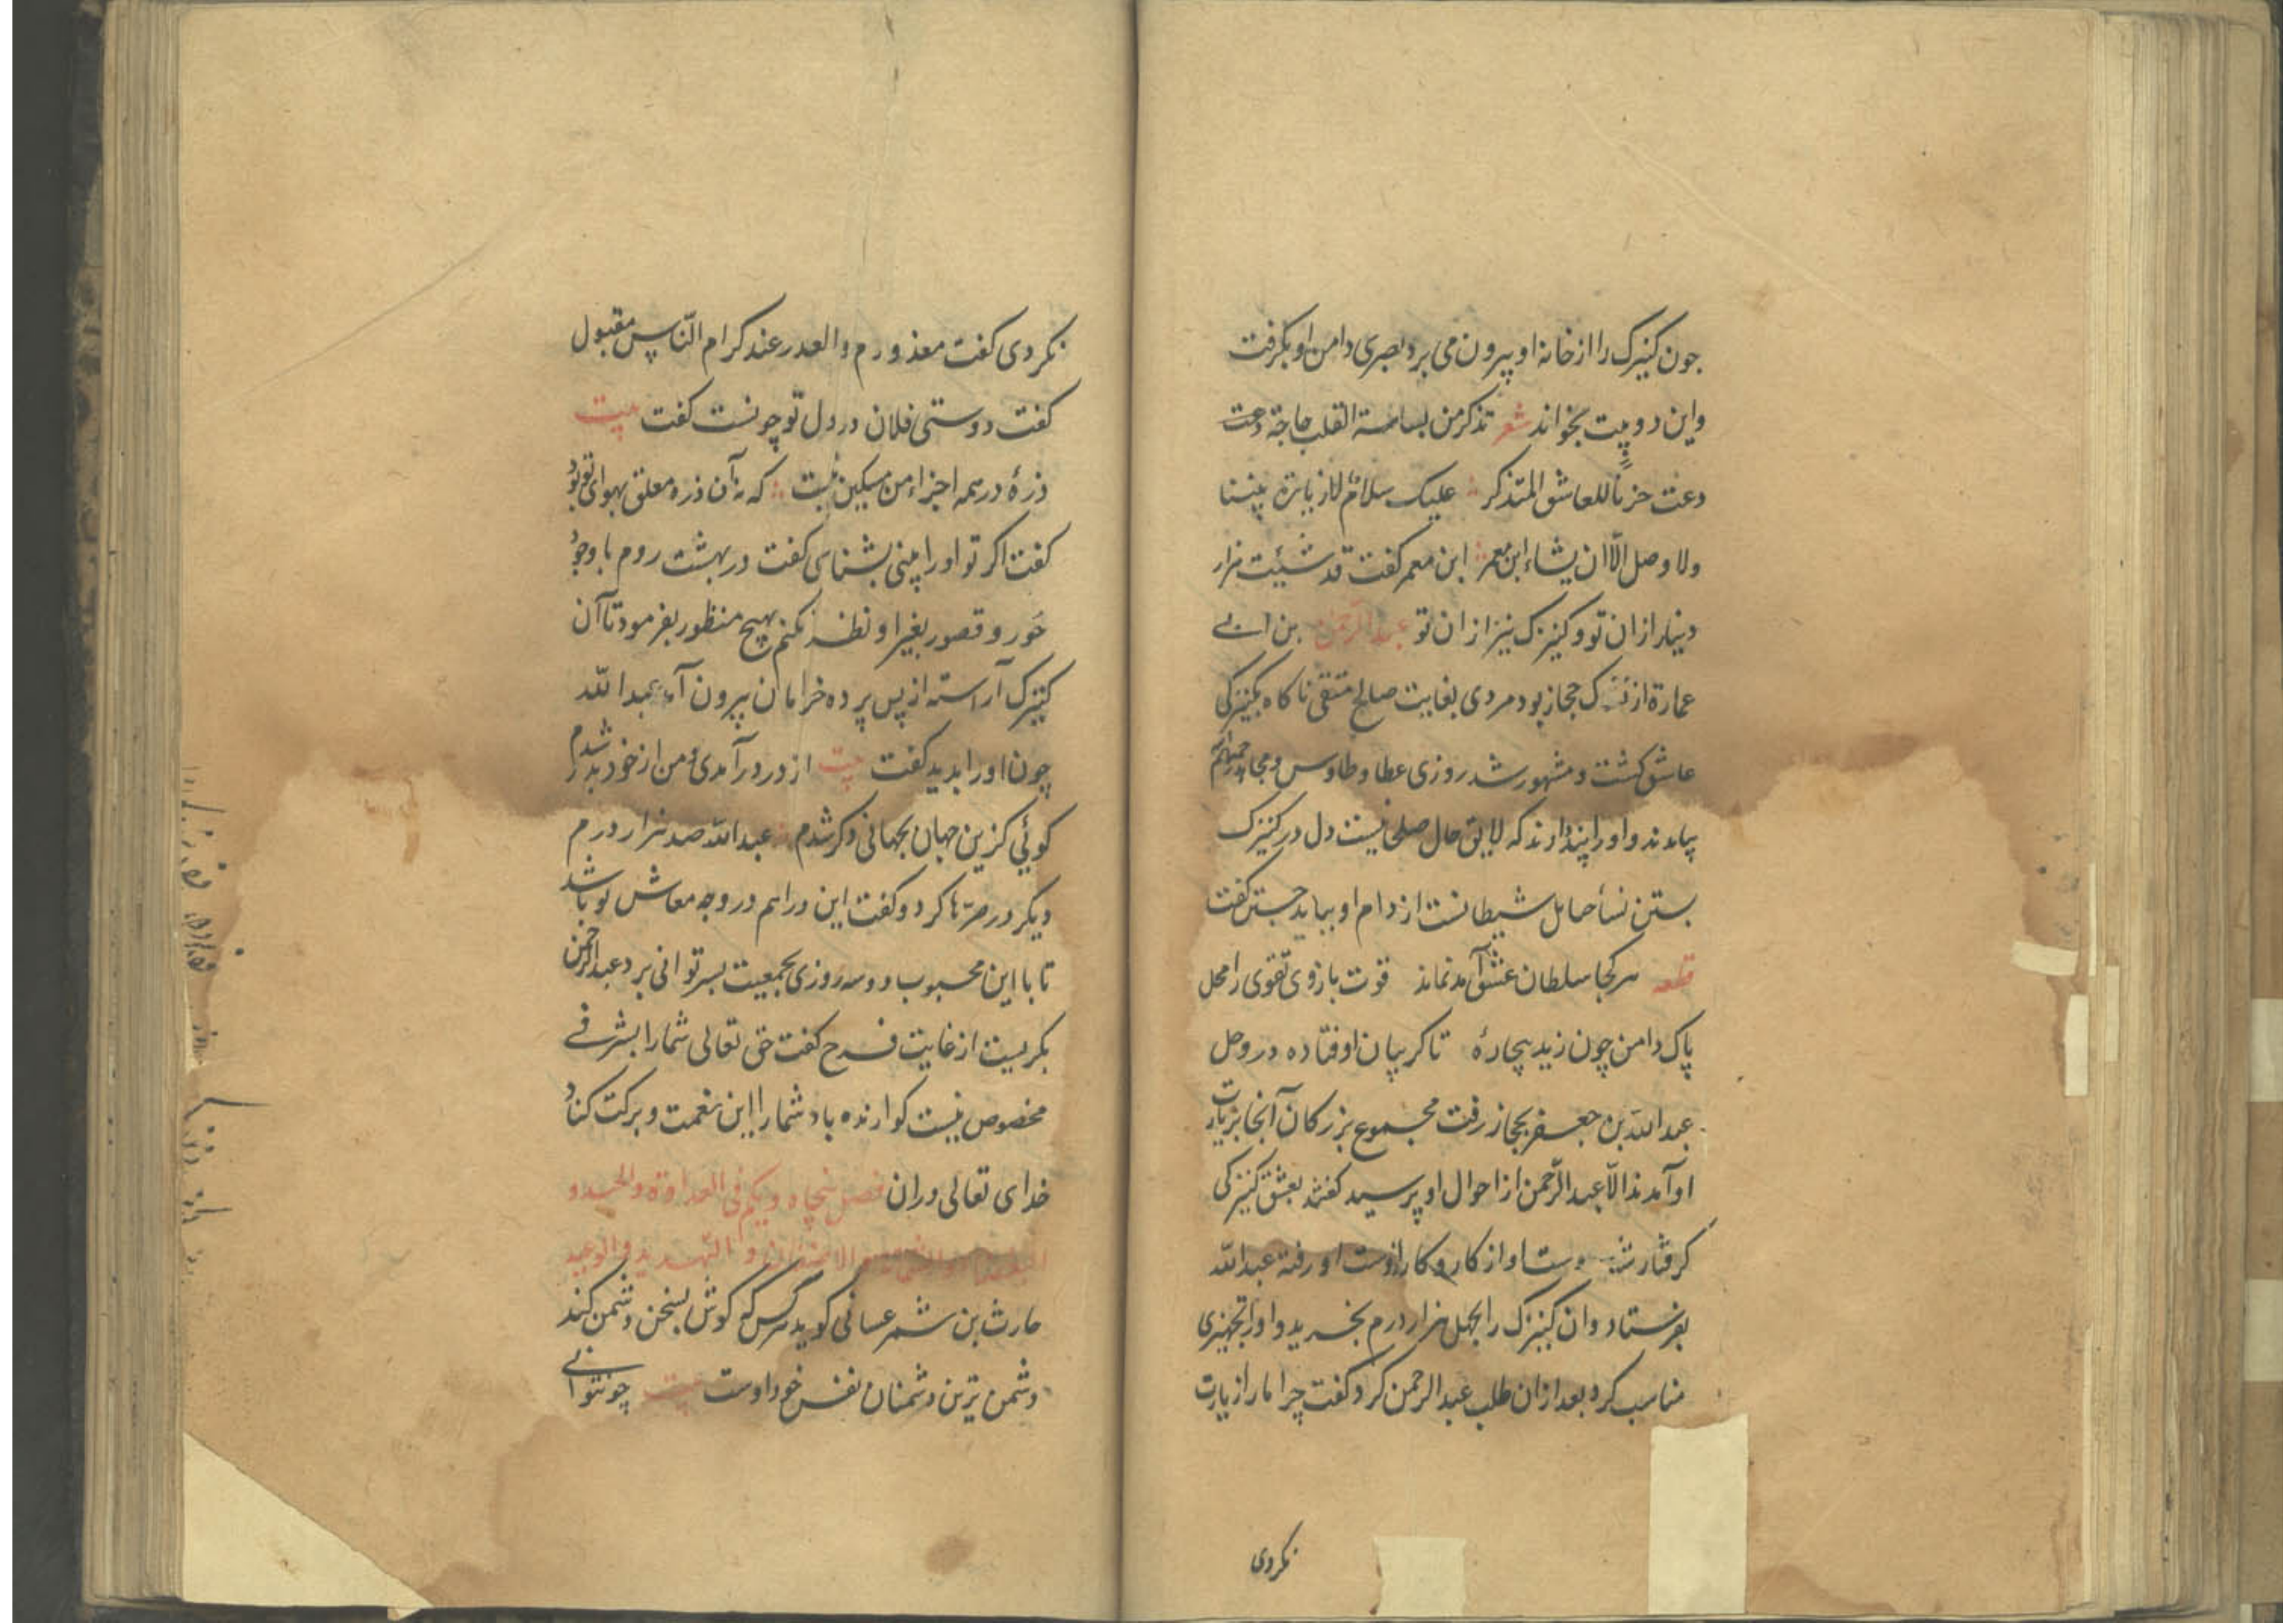 جون کنیزک را از خانه او بیرون می برد بصری دامن او بکرفت
واین دو بیت بخواند شعر تذکر من بساسة القلب حاجة دعت
دعت حزناً للعاشق المتذکر علیک سلام لا زیارة بیننا
ولا وصل الّا ان یشاء ابن معمر ابن معمر کفت قد شئیت هزار
دینار از ان تو و کنیزک نیز از ان تو عبد الرّحمن بن ابی
عمارة از حجاز بود مردی بغایت صالح متقی ناکاه بکنیزکی
عاشق کشت و مشهور شد روزی عطا و طاوس و مجاهد
بیامدند و او را پند دادند که لایق حال صلحا نیست دل در کنیزک
بستن نسأ حبایل شیطانست از دام او بباید جستن کفت
قطعه هر کجا سلطان عشق آمد نماند قوت بازوی تقوی را محل
پاک دامن چون زید بیچارهٔ تا کریبان اوفتاده در وحل
عبد الله بن جعفر بحجاز رفت مجموع بزرکان آنجا بزیارت
او آمدند الّا عبد الرّحمن از احوال او پرسید کفتند بعشق کنیزکی
کرفتار شد دست او از کار و کار از دست او رفته عبد الله
بفرستاد و ان کنیزک را بچهل هزار درم بخرید و او را تجهیزی
مناسب کرد بعد از ان طلب عبد الرحمن کرد کفت چرا ما را زیارت
نکردی
نکردی کفت معذورم و العذر عند کرام النّاس مقبول
کفت دوستی فلان در دل تو چونست کفت بیت
ذرهٔ در همه اجزاء من مسکین نیست که نه آن ذره معلق بهوای تو بود
کفت اکر تو او را بینی بشناسی کفت در بهشت روم با وجود
حَور و قصور بغیر او نظر نکنم بهیج منظور بفرمود تا آن
کنیزک آراسته از پس پرده خرامان بیرون آمد عبد الله
چون او را بدید کفت بیت از در درآمدی و من از خود بدر شدم
کوئی کزین جهان بجهانی دکر شدم عبد الله صد هزار درم
دیکر در صرّها کرد و کفت این را هم در وجه معاش تو باشد
تا با این محبوب دو سه روزی بجمعیت بسر توانی برد عبد الرحمن
بکریست از غایت فرح کفت حق تعالی شما را بشرفی
مخصوص کوارنده باد شما را این نعمت و برکت کناد
خدای تعالی در ان فصل پنجاه و یکم فی العداوة والحسد و
البغضاء والشماتة و التّهدید والوعید
حارث بن شمر غسانی کوید هر کس که کوش بسخن دشمن کند
دشمن ترین دشمنان نفس خود اوست بیت چو نتوانی